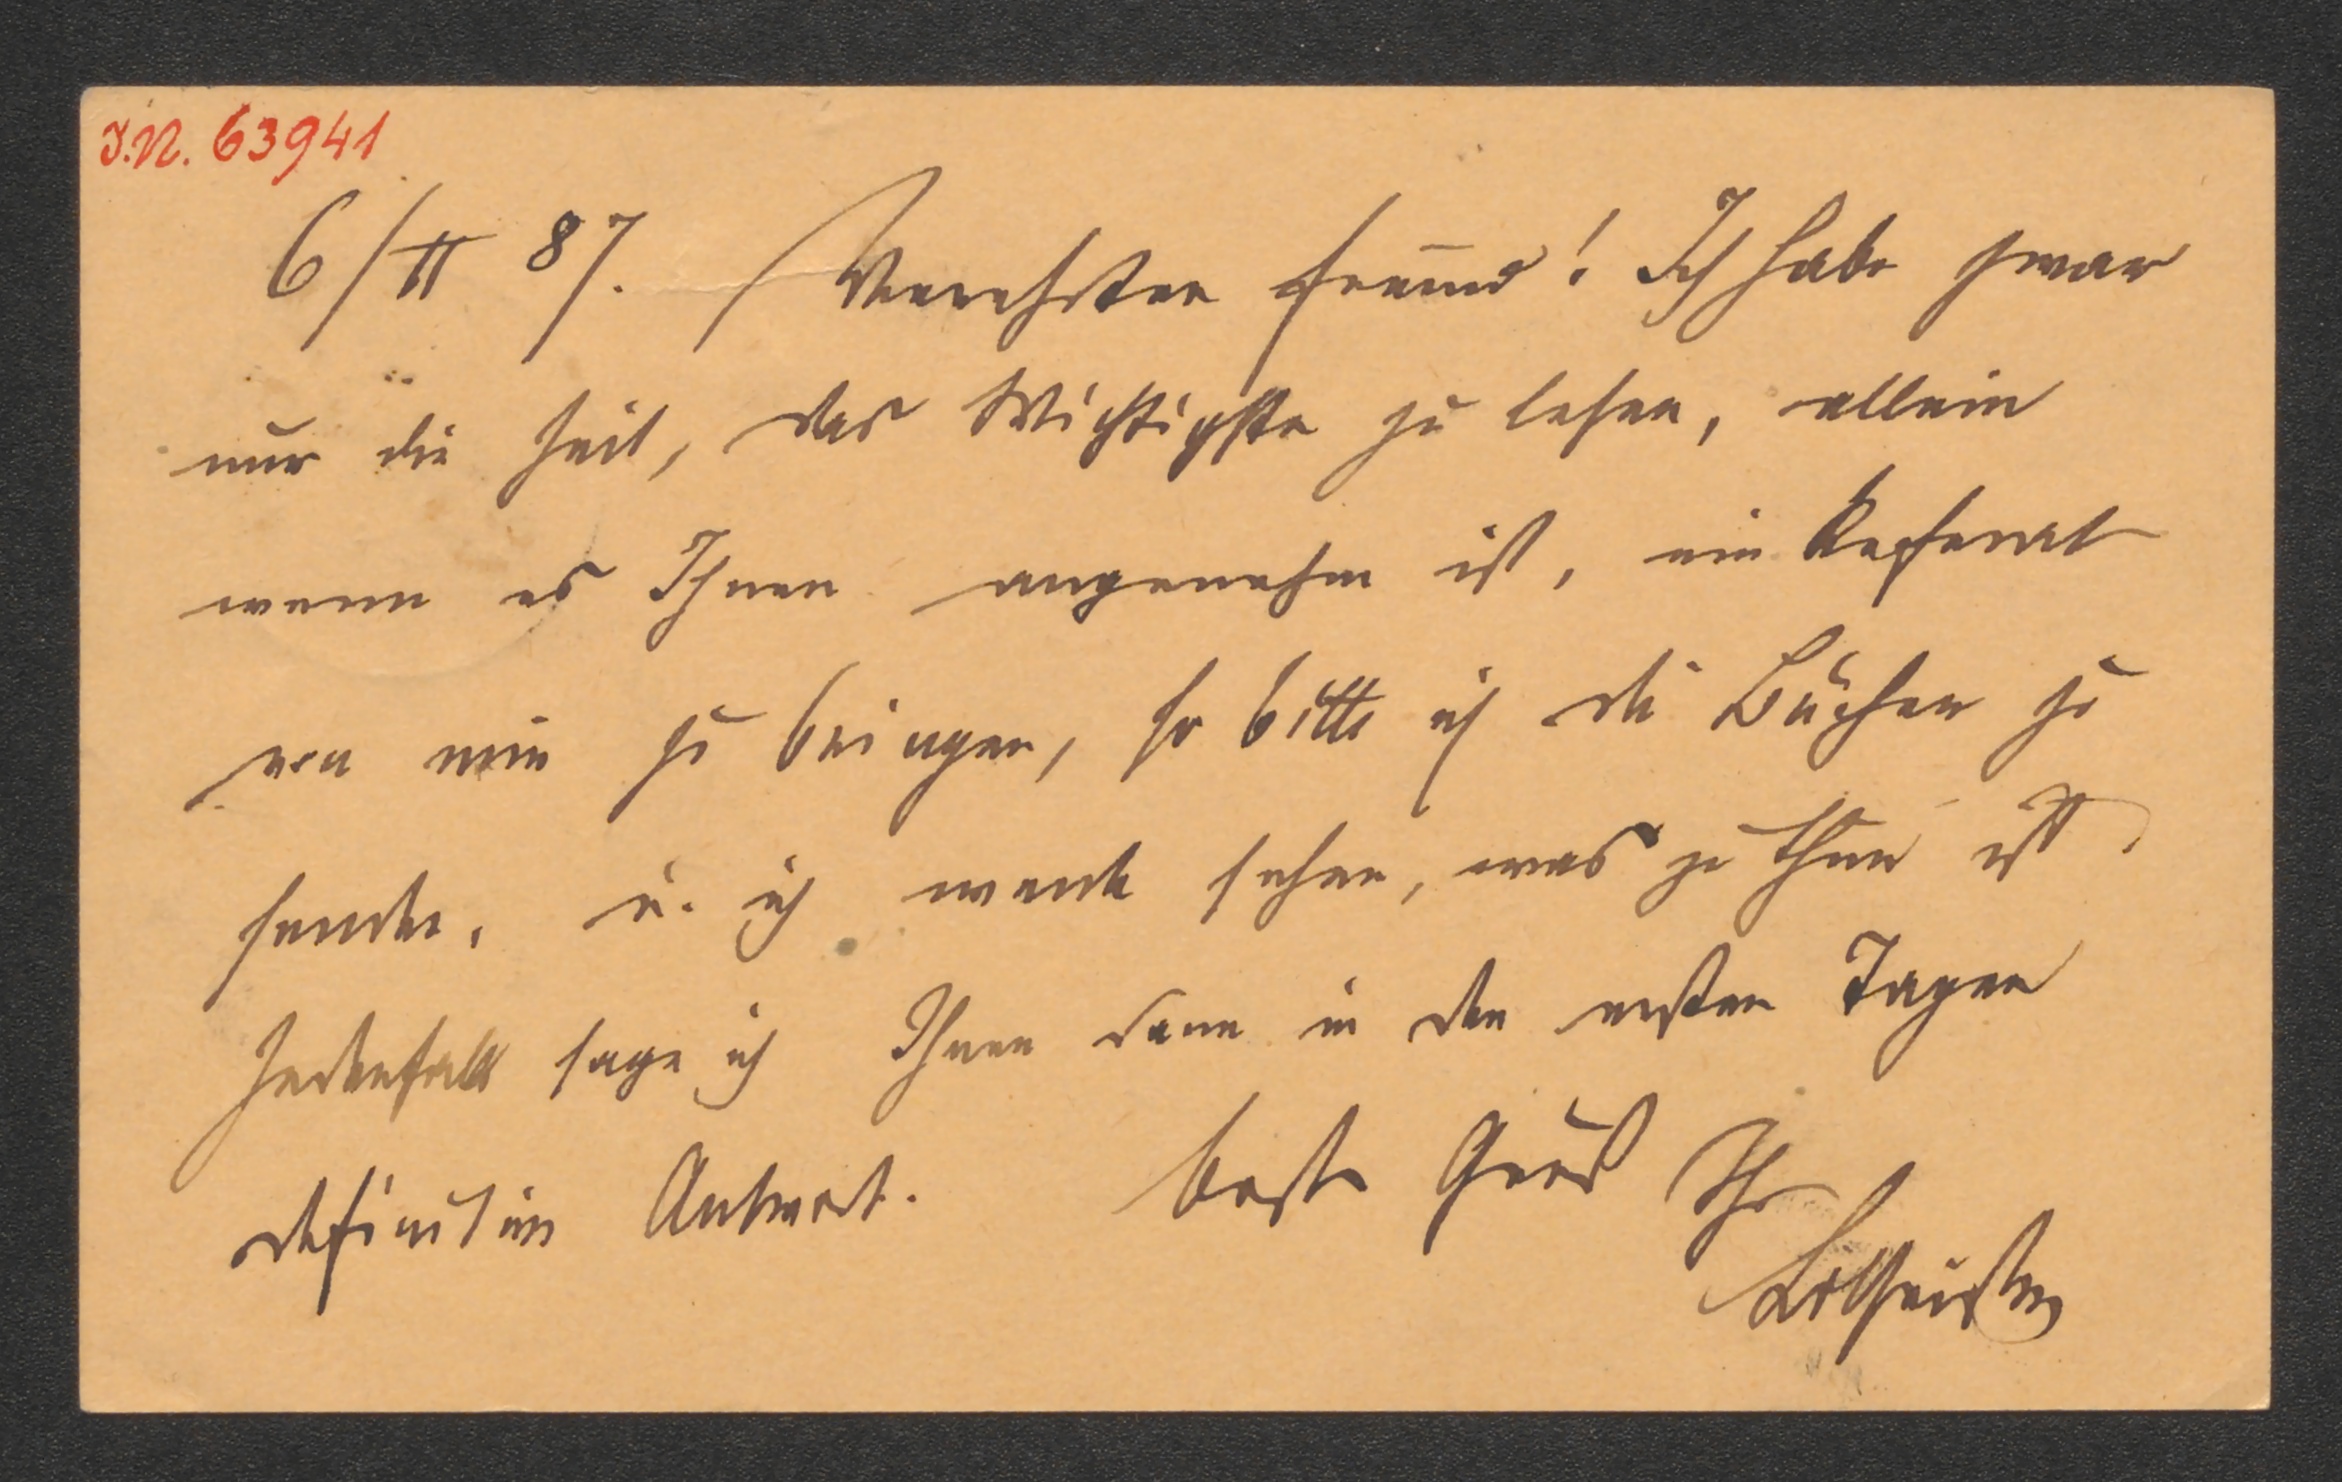 I.N. 63941
6/II 87. Verehrter Freund! Ich habe zwar
nur die Zeit, das Wichtigste zu lesen, allein
wenn es Ihnen angenehm ist, ein Referat
von mir zu bringen, so bitte ich die Bücher zu
senden, u. ich werde sehen, was zu thun ist.
Jedenfalls sage ich Ihnen dann in den ersten Tagen
definitiv Antwort. Beste Grüße Ihr
Lotheissen